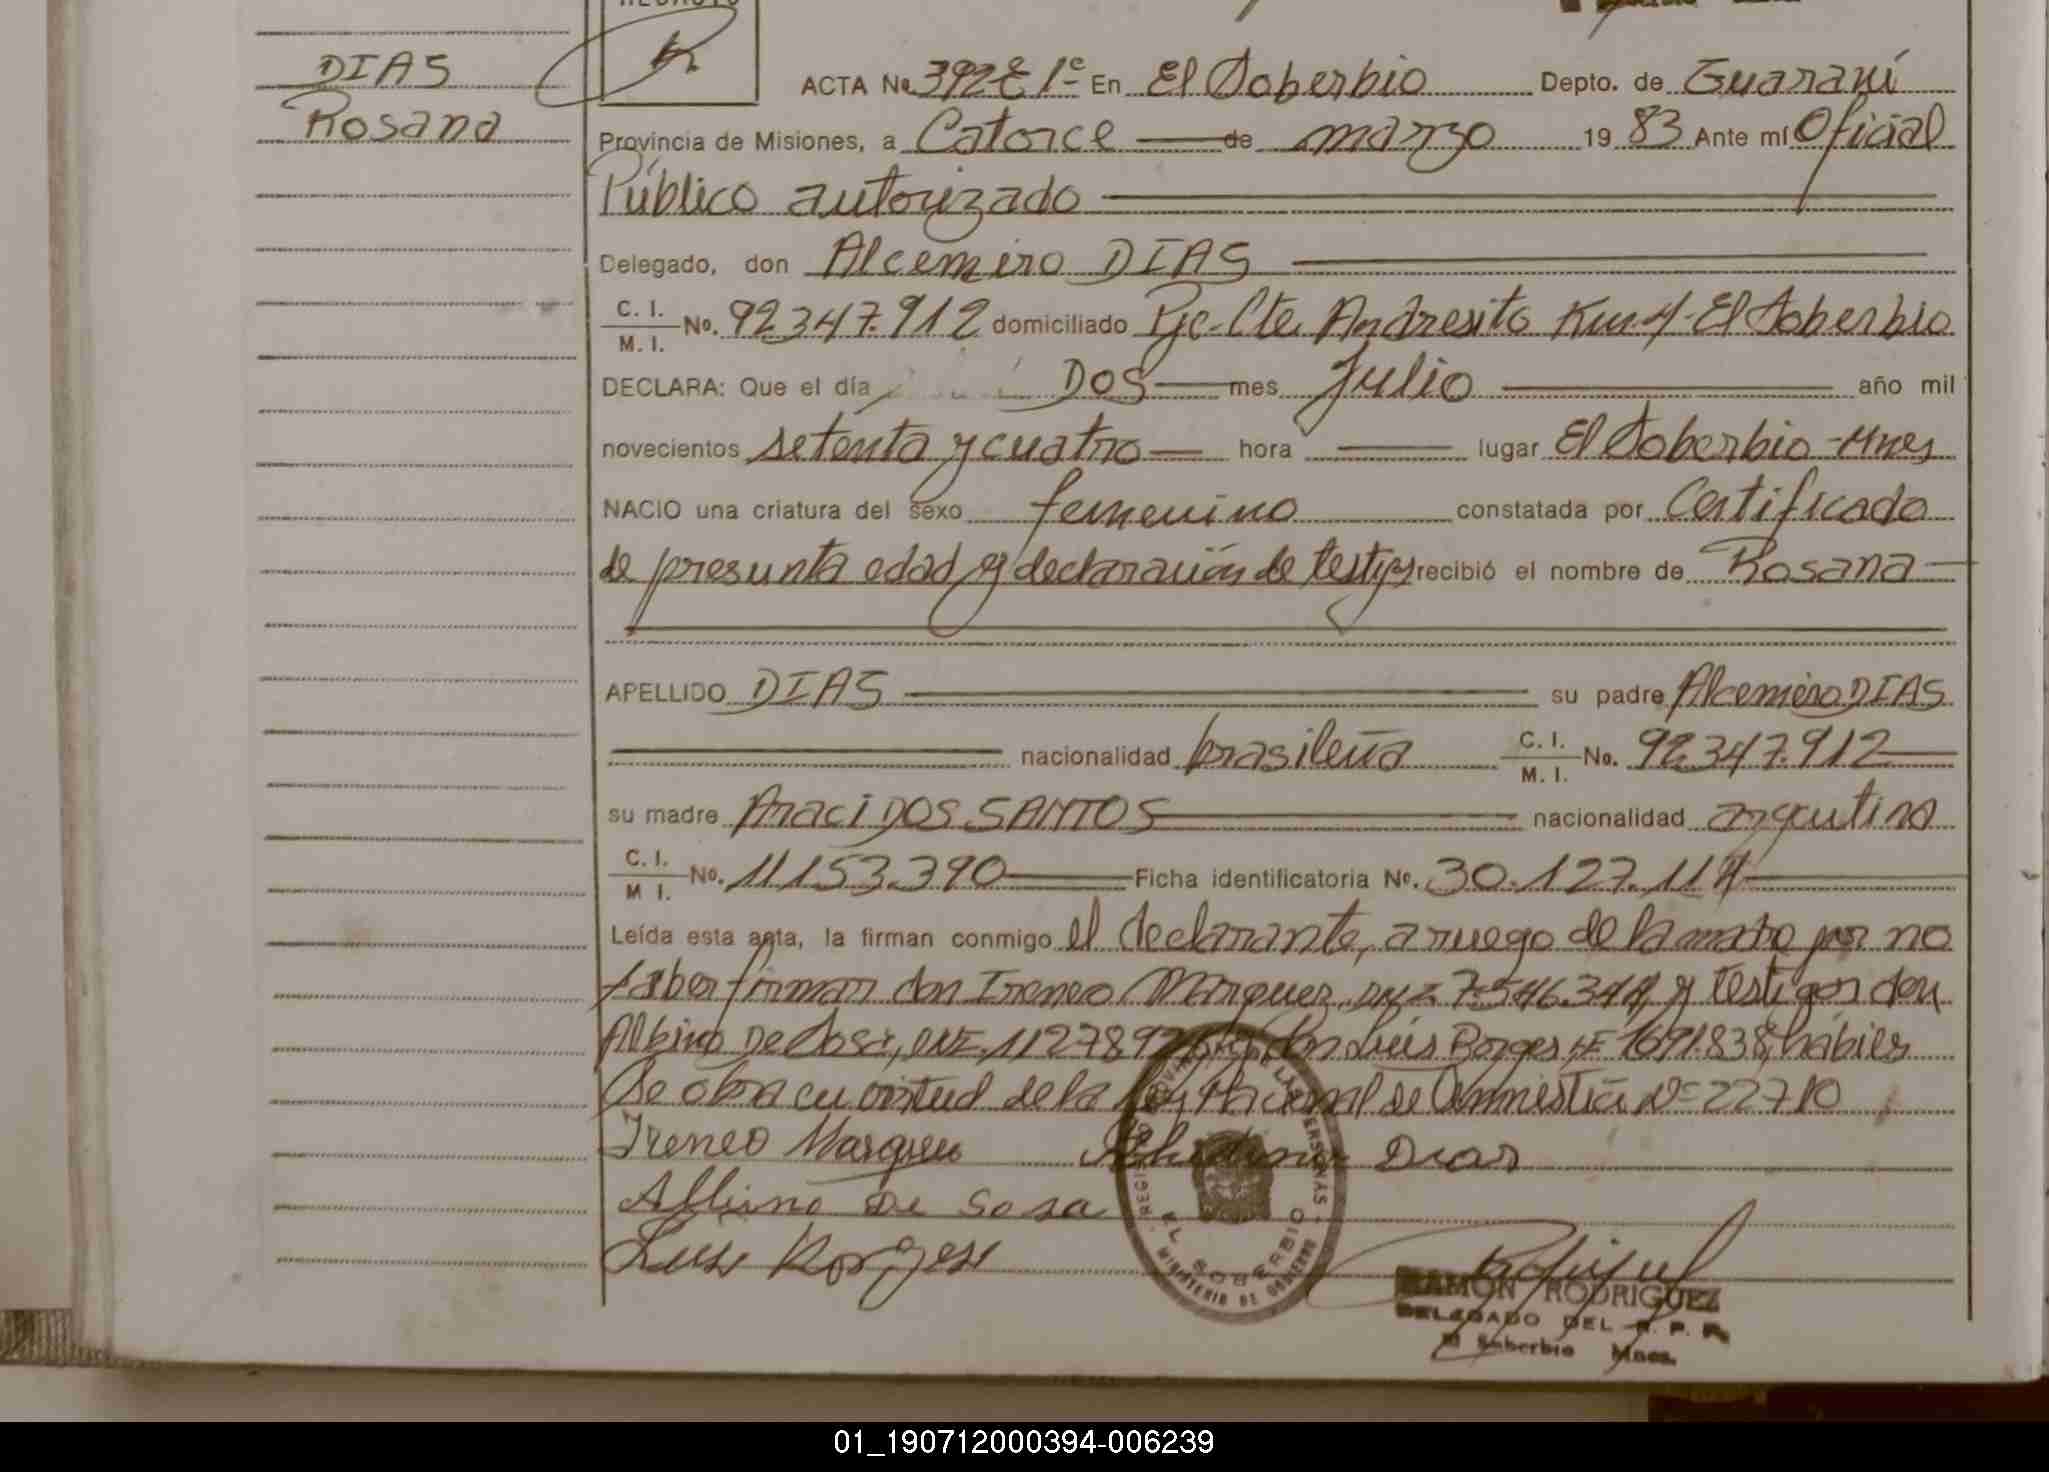 DIAS
Rosana
ACTA No. 392 E 1º En El Soberbio Depto. de Guaraní
Provincia de Misiones, a Catorce de marzo 19 83 Ante mí Oficial
Público autorizado
Delegado, don Alcemiro DIAS
C. I. / M. I. No. 92.347.912 domiciliado Pje-Cte Andresito Km 4-El Soberbio
DECLARA: Que el día DOS mes Julio año mil
novecientos setenta y cuatro hora lugar El Soberbio-Mnes
NACIO una criatura del sexo femenino constatada por Certificado
de presunta edad y declaración de testigos recibió el nombre de Rosana
APELLIDO DIAS su padre Alcemiro DIAS
nacionalidad brasileña C. I. / M. I. No. 92.347.912
su madre Araci DOS SANTOS nacionalidad argentina
C. I. / M I. No. 11.153.390 Ficha identificatoria No. 30.127.114
Leída esta acta, la firman conmigo el declarante, a ruego de la madre por no
saber firmar don Ireneo Márquez, 7.546.344, y testigos don
Albino De Sosa, DNI. don Luis Borges, LE 1691.838, hábiles
Se obra en virtud de la Ley Nacional de Amnistía Nº 22710
Ireneo Marques Dias
Albino De Sosa
Luis Borges
EL SOBERBIO
MINISTERIO DE GOBIERNO
RAMON RODRIGUEZ
DELEGADO DEL R. P. P.
El Soberbio Mnes.
01_190712000394-006239